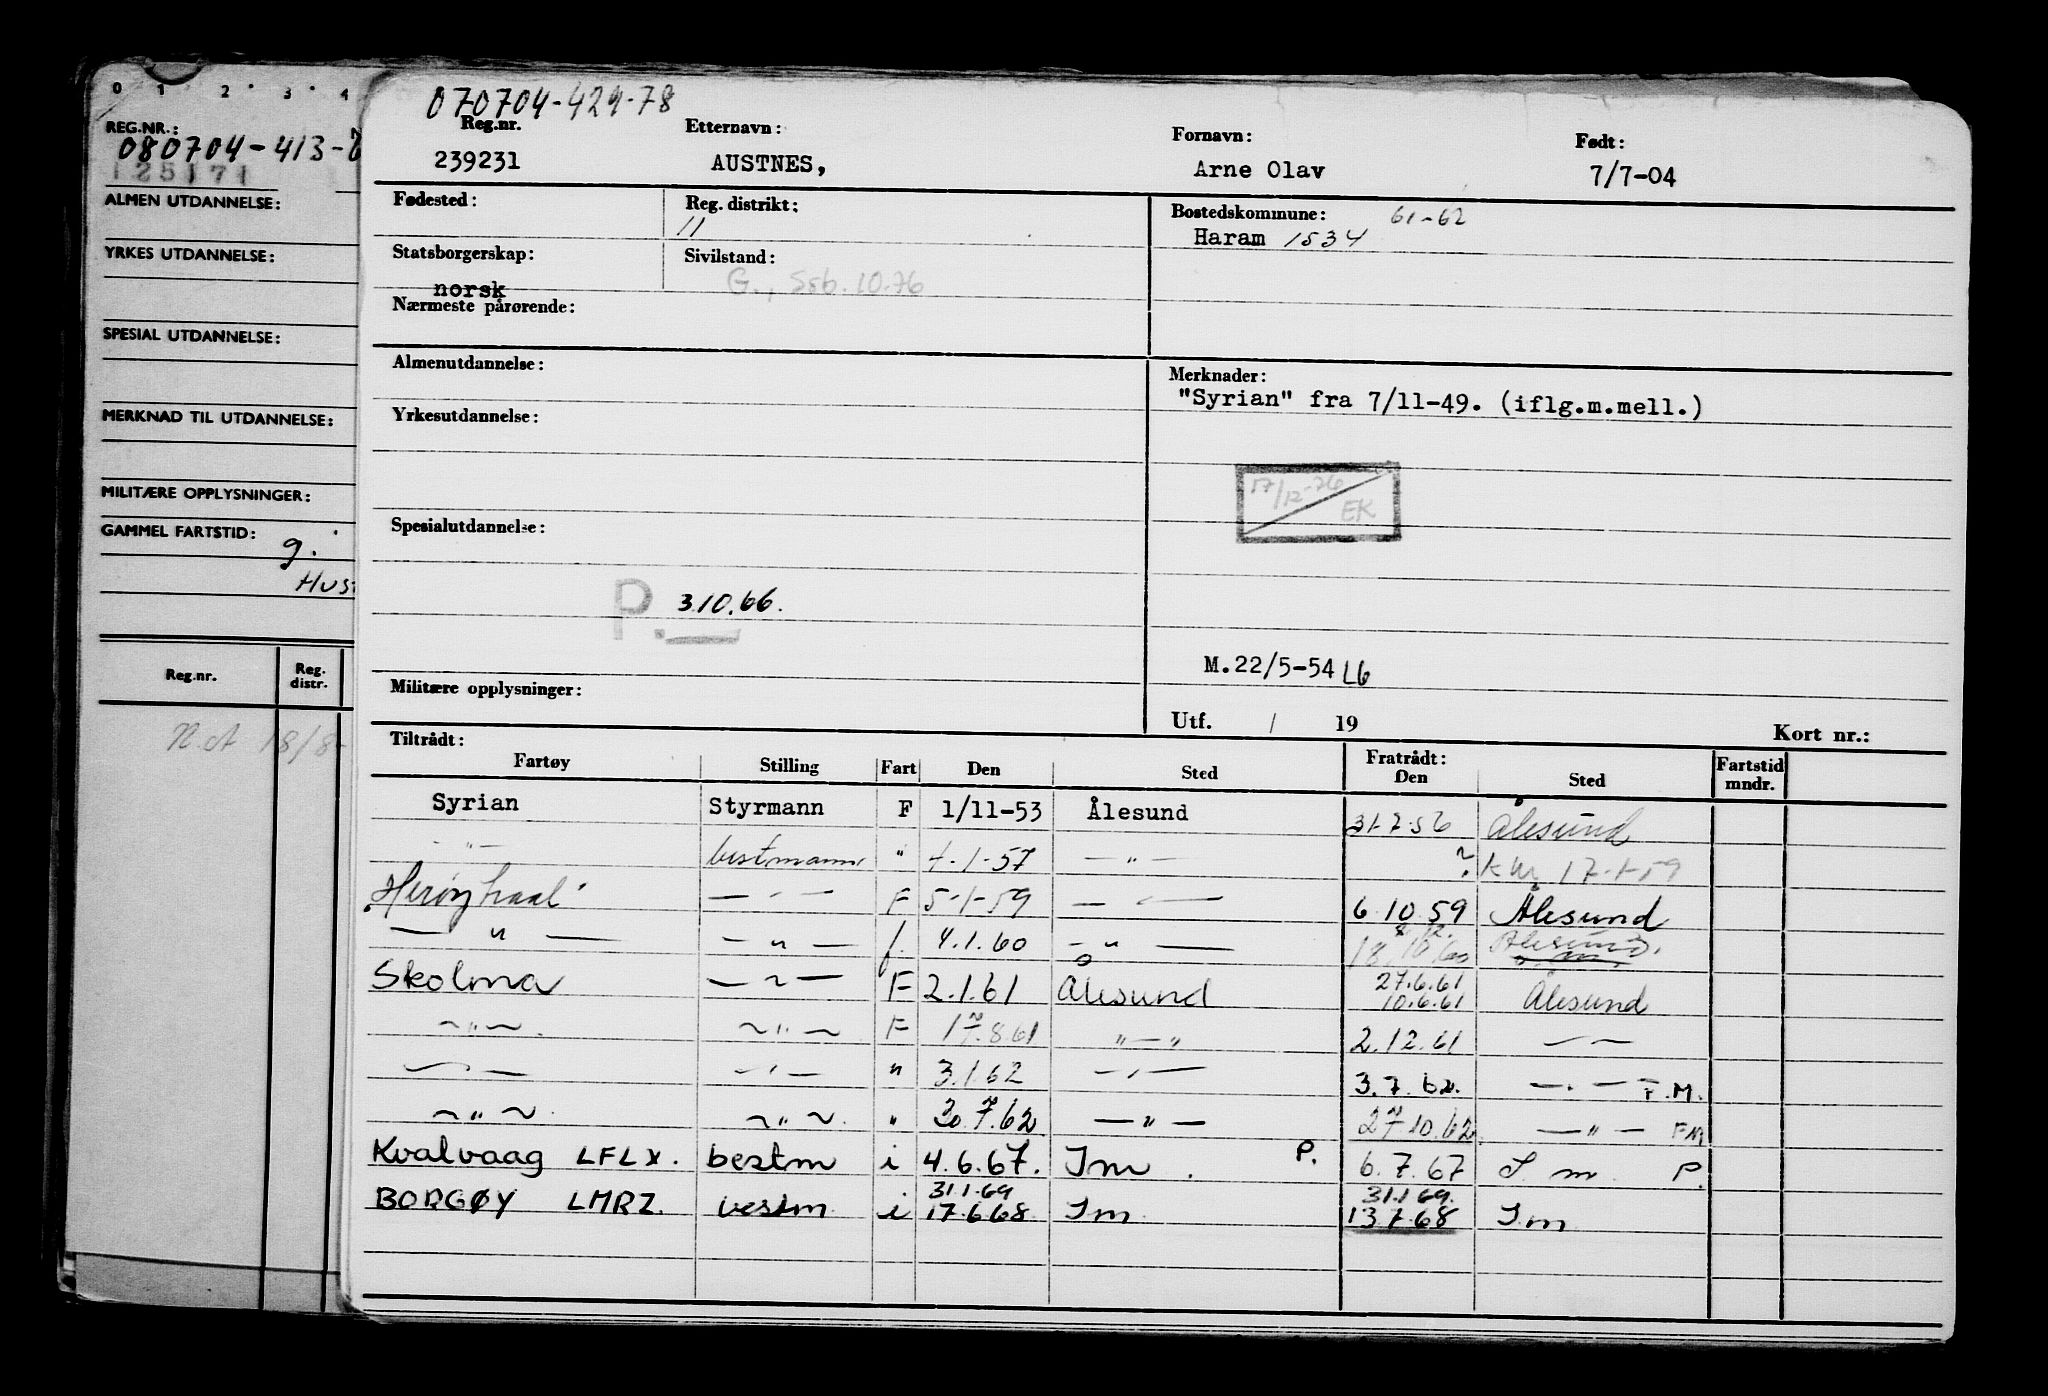 0 1 2 3 4
REG.NR.:
080704-413-
125171
ALMEN UTDANNELSE:
YRKES UTDANNELSE:
SPESIAL UTDANNELSE:
MERKNAD TIL UTDANNELSE:
MILITÆRE OPPLYSNINGER:
GAMMEL FARTSTID: g.
Hus
Reg.nr. Reg. distr.
18/8-
070704-429-78
Reg.nr. Etternavn: Fornavn: Født:
239231 AUSTNES, Arne Olav 7/7-04
Fødested: Reg. distrikt: Bostedskommune: 61-62
11 Haram 1534
Statsborgerskap: Sivilstand:
norsk G., Ssb. 10.76
Nærmeste pårørende:
Almenutdannelse: Merknader:
"Syrian" fra 7/11-49. (iflg.m.mell.)
Yrkesutdannelse:
17/12-76 EK
Spesialutdannelse:
P. 3.10.66.
M.22/5-54 LG
Militære opplysninger:
Utf. / 19 Kort nr.:
Tiltrådt: Fratrådt: Fartstid
Fartøy Stilling Fart Den Sted Den Sted mndr.
Syrian Styrmann F 1/11-53 Ålesund 31.7.56 Ålesund
— " — bestmann " 4-1-57 — " — ? 17-1-59
Herøytraal — " — F 5-1-59 — " — 6.10.59 Ålesund
— " — — " — f. 4.1.60 — " — Ålesund.
Skolma — " — F 2.1.61 Ålesund 27.6.61 10.6.61 Ålesund
— " — — " — F 17.8.61 " — " 2.12.61 — " —
— " — — " — " 3.1.62 — " — 3.7.62. — " — F.M.
— " — — " — " 30.7.62 — " — 27.10.62 — " — FM
Kvalvaag LFLX. bestm i 4.6.67. Im. P. 6.7.67 I m P.
31.1.69 31.1.69.
BORGØY LMRZ. bestm i 17.6.68 Im 13.7.68 I m